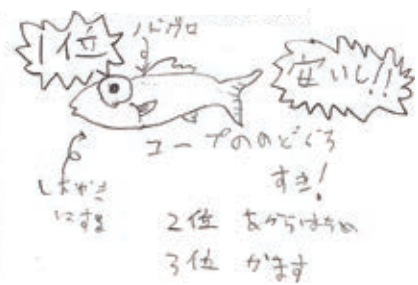 1位
ノドグロ
安いし!!
コープののどぐろ
すき!
しおやき
にする
2位 あからはちめ
3位 かます